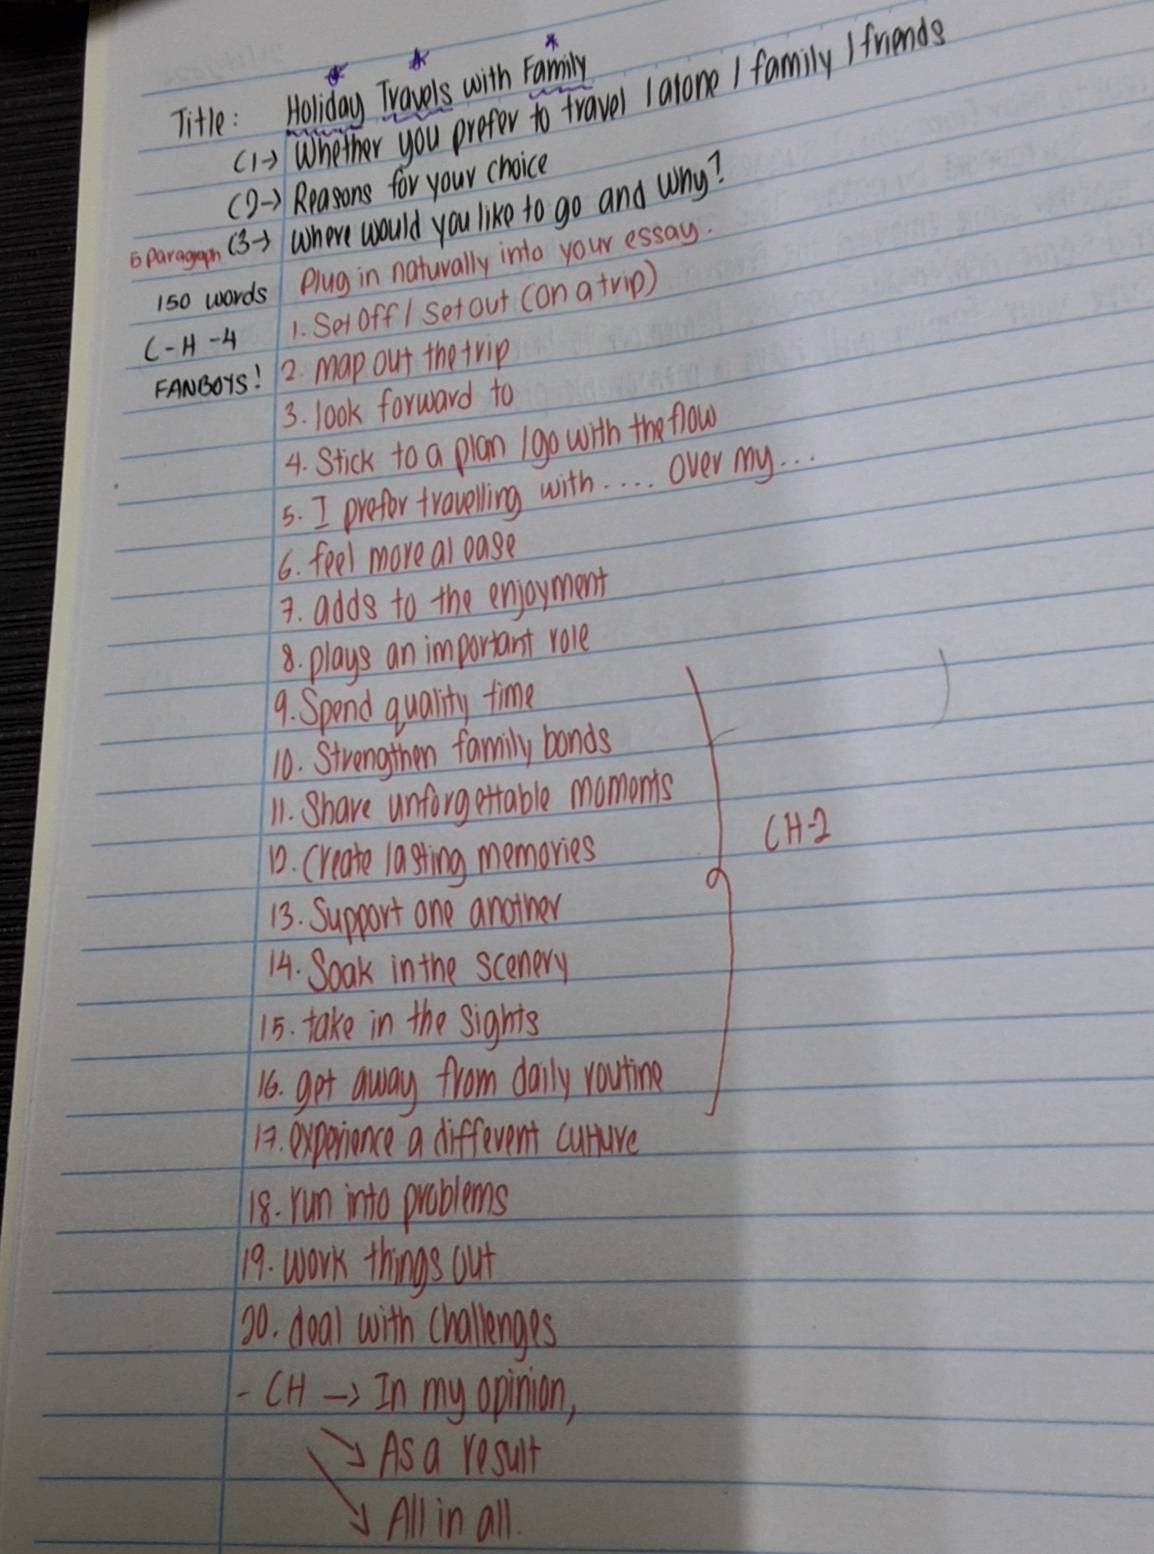 Title: Holiday Travels with Family
(1→ Whether you prefer to travel / alone / family / friends
(2→) Reasons for your choice
(3→ Where would you like to go and why?
5 Paragraph
Plug in naturally into your essay.
150 words
1. Set Off / Set out (on a trip)
C-H-4
2. map out the trip
FANBOYS!
3. look forward to
4. Stick to a plan / go with the flow
5. I prefer travelling with .... over my ...
6. feel more at ease
7. adds to the enjoyment
8. plays an important role
9. Spend quality time
10. Strengthen family bonds
11. Share unforgettable moments
CH-2
12. Create lasting memories
13. Support one another
14. Soak in the scenery
15. take in the Sights
16. get away from daily routine
17. experience a different culture
18. run into problems
19. work things out
20. deal with challenges
- CH → In my opinion,
↘ As a result
↘ All in all.